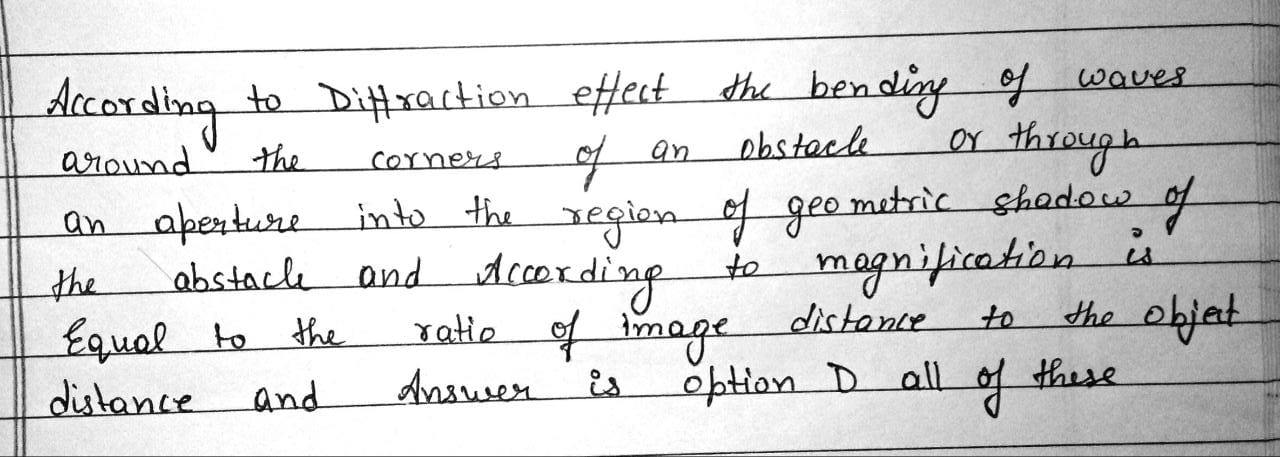 According to Diffraction effect the bending of waves
around the corners of an obstacle or through
an aperture into the region of geometric shadow of
the abstacle and According to magnification is
Equal to the ratio of image distance to the objet
distance and Answer is option D all of these